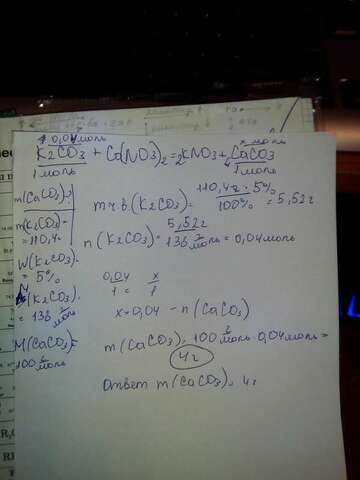 0,04 моль x моль
K2CO3 + Ca(NO3)2 = 2KNO3 + CaCO3
1 моль 1 моль
m(CaCO3)-?
m(K2CO3)=
=110,4г
W(K2CO3)=
= 5%
M(K2CO3)=
= 138 г/моль
M(CaCO3)=
100 г/моль
m ч.в. (K2CO3) = 110,4г · 5% / 100% = 5,52г
n (K2CO3) = 5,52г / 138 г/моль = 0,04 моль
0,04 / 1 = x / 1
x = 0,04 - n (CaCO3)
m (CaCO3) = 100 г/моль · 0,04 моль =
4г
Ответ m (CaCO3) = 4г